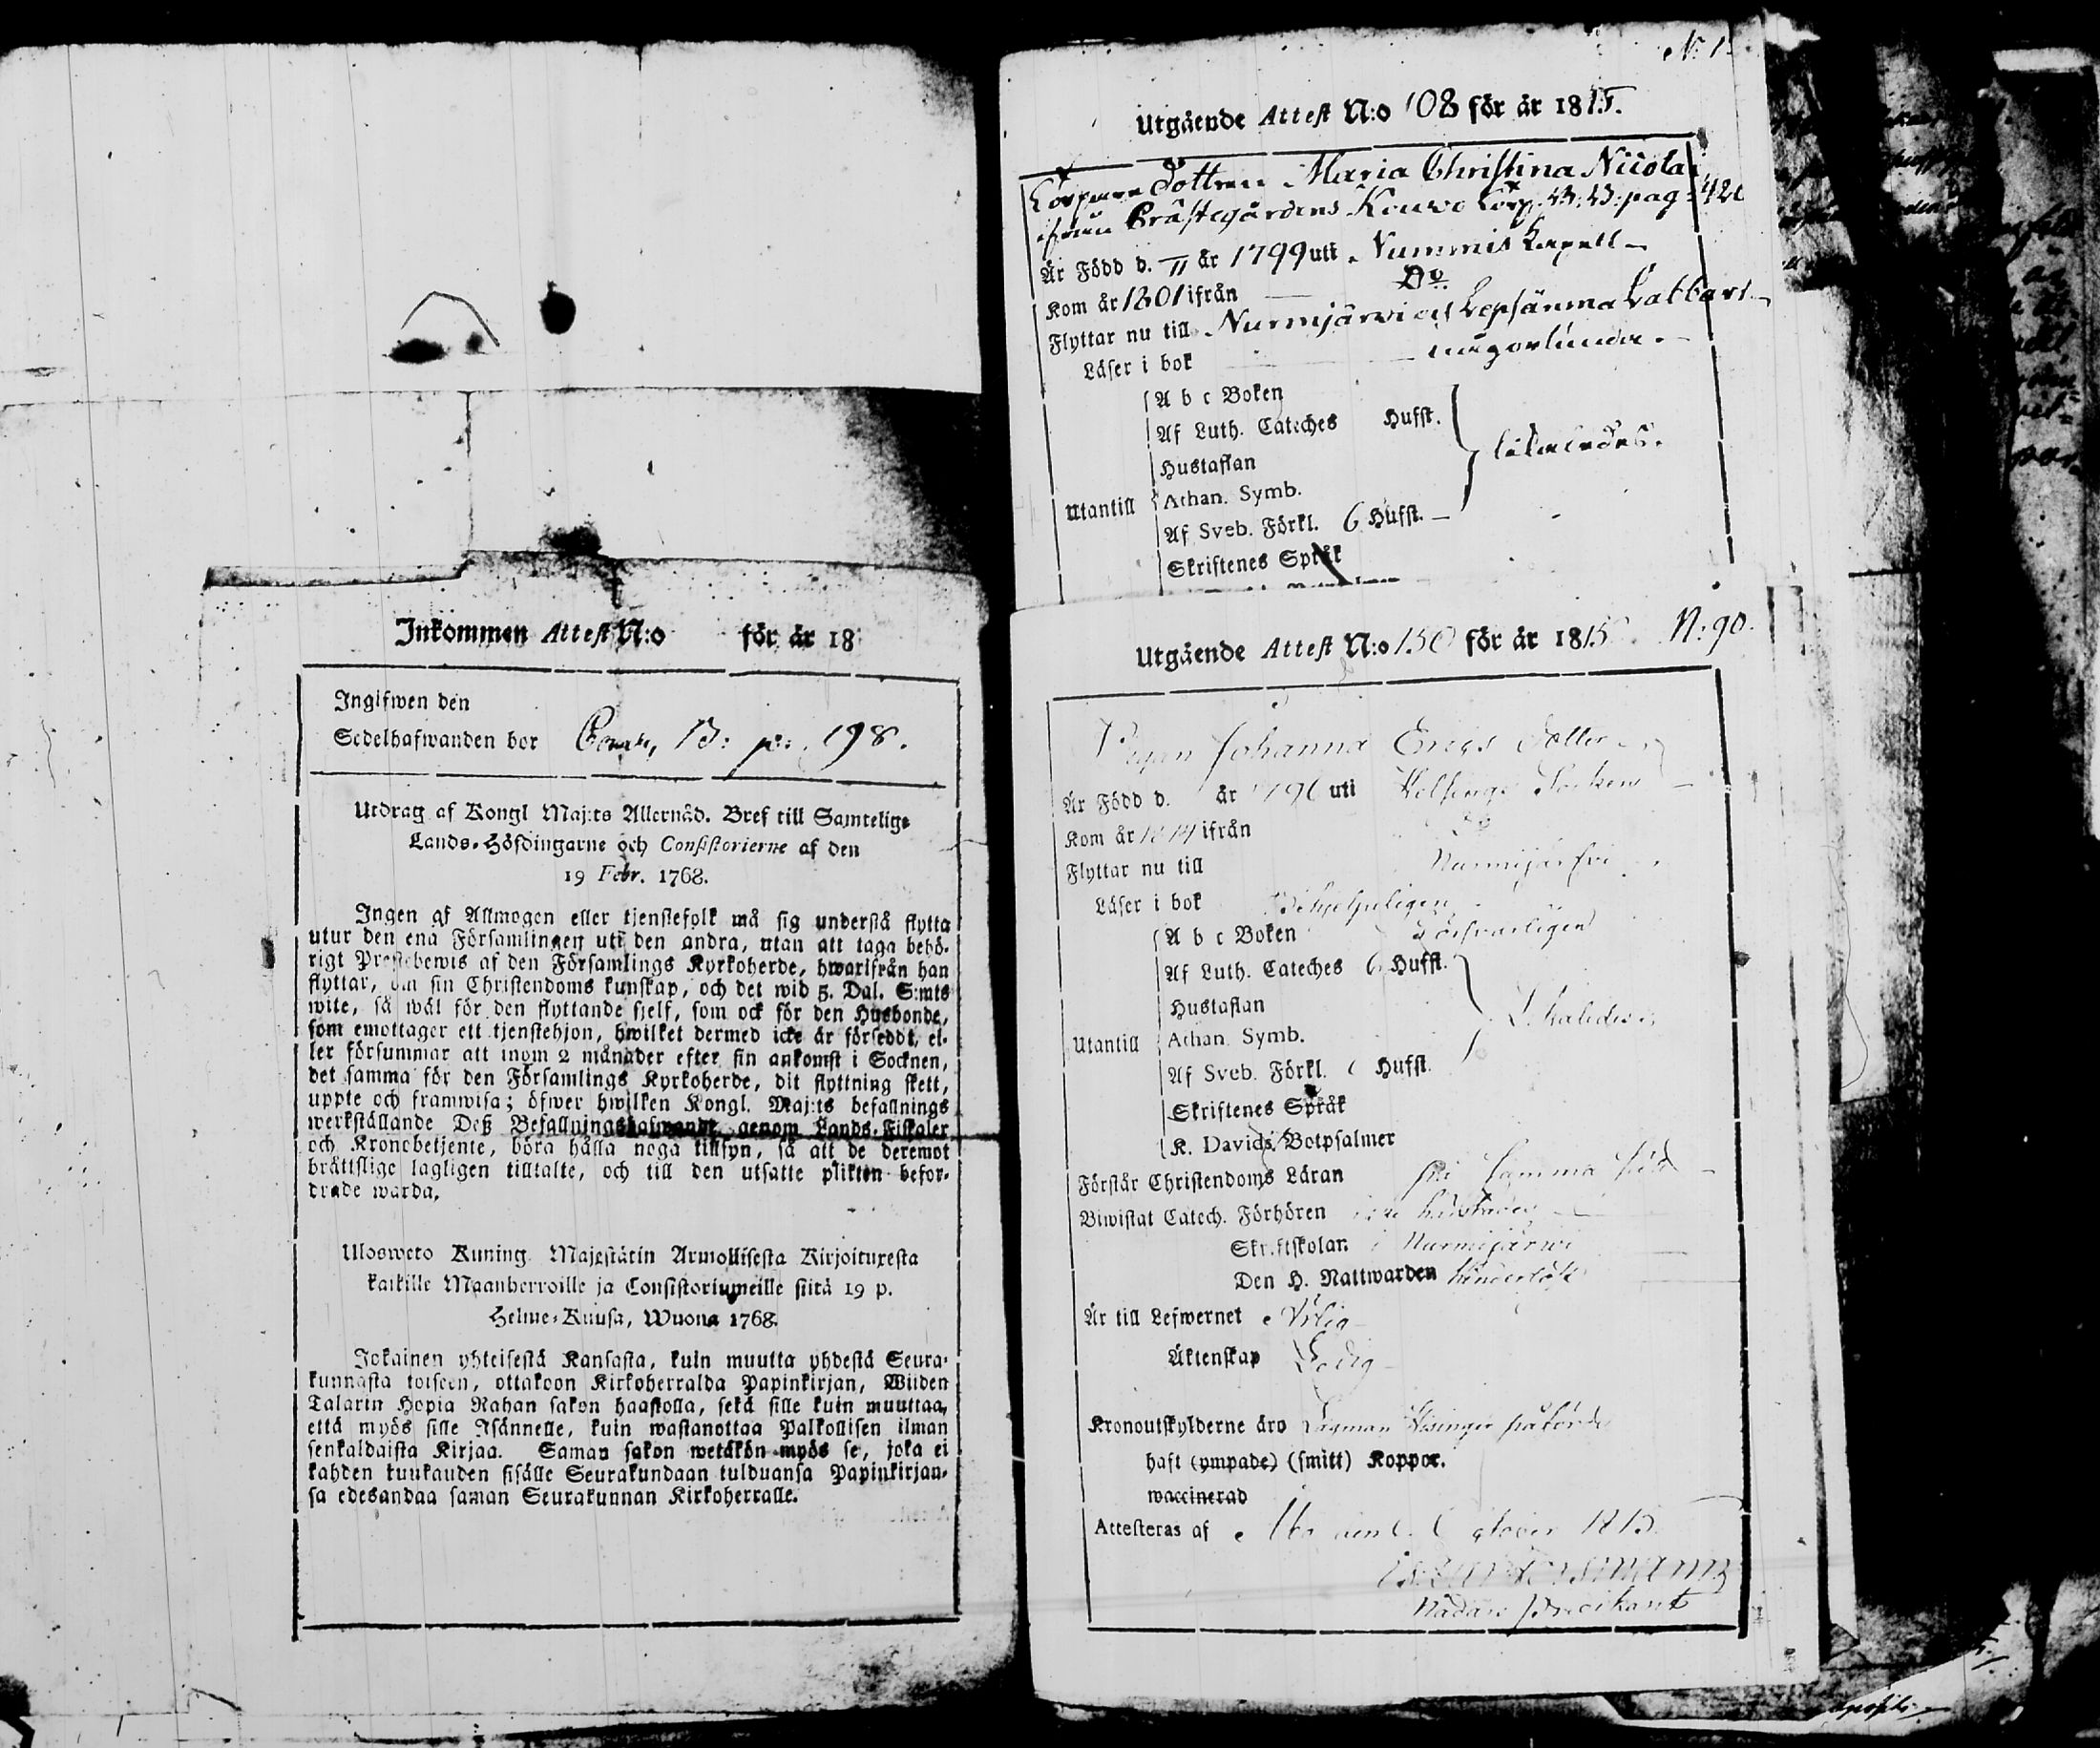 Inkommen Attest N:o för år 18
Ingifwen den
Sedelhafwanden bor 13: p: 198.
Utdrag af Kongl Maj:ts Allernåd. Bref till Samtelige
Lands-Höfdingarne och Consistorierne af den
19 Febr. 1768.
Ingen af Allmogen eller tjenstefolk må sig understå flytta
utur den ena Församlingen uti den andra, utan att taga behö-
rigt Prestebewis af den Församlings Kyrkoherde, hwarifrån han
flyttar, om sin Christendoms kunskap, och det wid 5. Dal. S:mts
wite, så wäl för den flyttande sjelf, som ock för den Husbonde,
som emottager ett tjenstehjon, hwilket dermed icke är försedt, el-
ler försummar att inom 2 månader efter sin ankomst i Socknen,
det samma för den Församlings Kyrkoherde, dit flyttning skett,
uppte och framwisa; öfwer hwilken Kongl. Maj:ts befallnings
werkställande Deß Befallningshafwande genom Lands-Fiskaler
och Kronobetjente, böra hålla noga tillsyn, så att de deremot
bråttslige lagligen tilltalte, och till den utsatte plikten befor-
drade warda.
Ulosweto Kuning. Majestätin Armollisesta Kirjoituxesta
kaikille Maanherroille ja Consistoriumeille siitä 19 p.
Helme-Kuusa, Wuona 1768.
Jokainen yhteisestä Kansasta, kuin muutta yhdestä Seura-
kunnasta toiseen, ottakoon Kirkoherralda Papinkirjan, Wiiden
Talarin Hopia Rahan sakon haastolla, sekä sille kuin muuttaa,
että myös sille Isännelle, kuin wastanottaa Palkollisen ilman
senkaldaista Kirjaa. Saman sakon wetäkön myös se, joka ei
kahden kuukauden sisälle Seurakundaan tulduansa Papinkirjan-
sa edesandaa saman Seurakunnan Kirkoherralle.
Utgående Attest N:o 108 för år 1815.
Dottren Maria Christina Nicolai
ifrån Prästegårdens pag: 420
Är Född d. år 1799 uti Nummis Kapell
Kom år 1801 ifrån Do
Flyttar nu till Nurmijärwi och Lepsänma
Läser i bok någorlunda.
A b c Boken
Af Luth. Cateches Hufst.
Hustaflan likaledes.
Utantill Athan. Symb.
Af Sveb. Förkl. 6 Hufst.
Skriftenes Språk
Utgående Attest N:o 150 för år 1815 N:90.
Pigan Johanna Eriks Dotter
Är Född d. år 1796 uti Helsinge Socken
Kom år 1814 ifrån Do
Flyttar nu till Nurmijärfvi
Läser i bok
A b c Boken Försvarligen
Af Luth. Cateches 6 Hufst.
Hustaflan
Utantill Athan. Symb. Likaledes
Af Sveb. Förkl. 6 Hufst.
Skriftenes Språk
K. Davids Botpsalmer
Förstår Christendoms Läran på samma sätt
Biwistat Catech. Förhören
Skriftskolan i Nurmijärwi
Den H. Nattwarden
Är till Lefwernet Ärlig
Äktenskap Ledig
Kronoutskylderne äro Lagman Hisinger påförde
haft (ympade) (smitt) Koppor.
waccinerad
Attesteras af October 1815
Nådårs Predikant